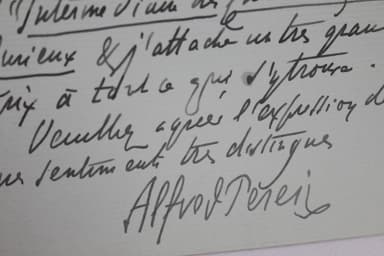 "Intermédiaire des
curieux & j'attache un très gran
prix à tout ce qui s'y trouve.
Veuillez agréer l'expression d
mes sentiments très distingués
Alfred Pereire